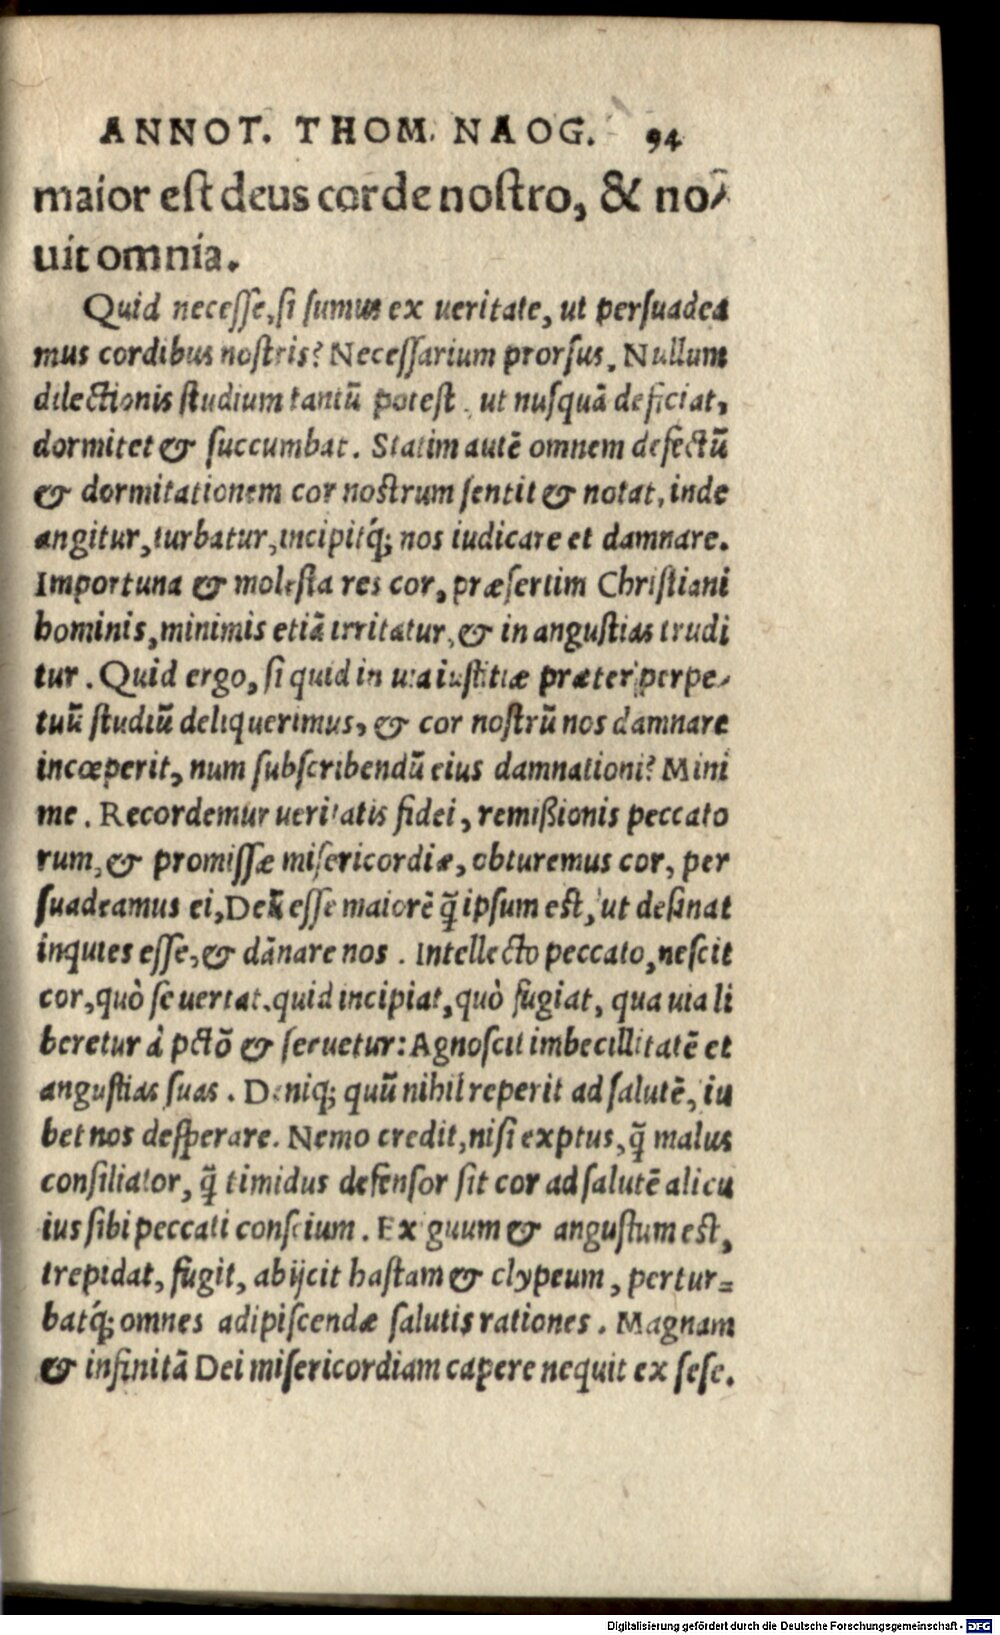 ANNOT. THOM. NAOG. 94
maior est deus corde nostro, & no-
uit omnia.
Quid necesse, si sumus ex ueritate, ut persuadea
mus cordibus nostris? Necessarium prorsus. Nullum
dilectionis studium tantū potest, ut nusquā deficiat,
dormitet & succumbat. Statim autē omnem defectū
& dormitationem cor nostrum sentit & notat, inde
angitur, turbatur, incipitq́; nos iudicare et damnare.
Importuna & molesta res cor, præsertim Christiani
hominis, minimis etiā irritatur, & in angustias trudi
tur. Quid ergo, si quid in uia iustitiæ præter perpe-
tuū studiū deliquerimus, & cor nostrū nos damnare
incœperit, num subscribendū eius damnationi? Mini
me. Recordemur ueritatis fidei, remißionis peccato
rum, & promissæ misericordiæ, obturemus cor, per
suadeamus ei, Deū esse maiorē q̃ ipsum est, ut desinat
inquies esse, & dānare nos. Intellecto peccato, nescit
cor, quò se uertat, quid incipiat, quò fugiat, qua uia li
beretur à pctō & seruetur: Agnoscit imbecillitatē et
angustias suas. Deniq; quū nihil reperit ad salutē, iu
bet nos desperare. Nemo credit, nisi exptus, q̃ malus
consiliator, q̃ timidus defensor sit cor ad salutē alicu
ius sibi peccati conscium. Exiguum & angustum est,
trepidat, fugit, abijcit hastam & clypeum, pertur-
batq́; omnes adipiscendæ salutis rationes. Magnam
& infinitā Dei misericordiam capere nequit ex sese.
Digitalisierung gefördert durch die Deutsche Forschungsgemeinschaft - DFG